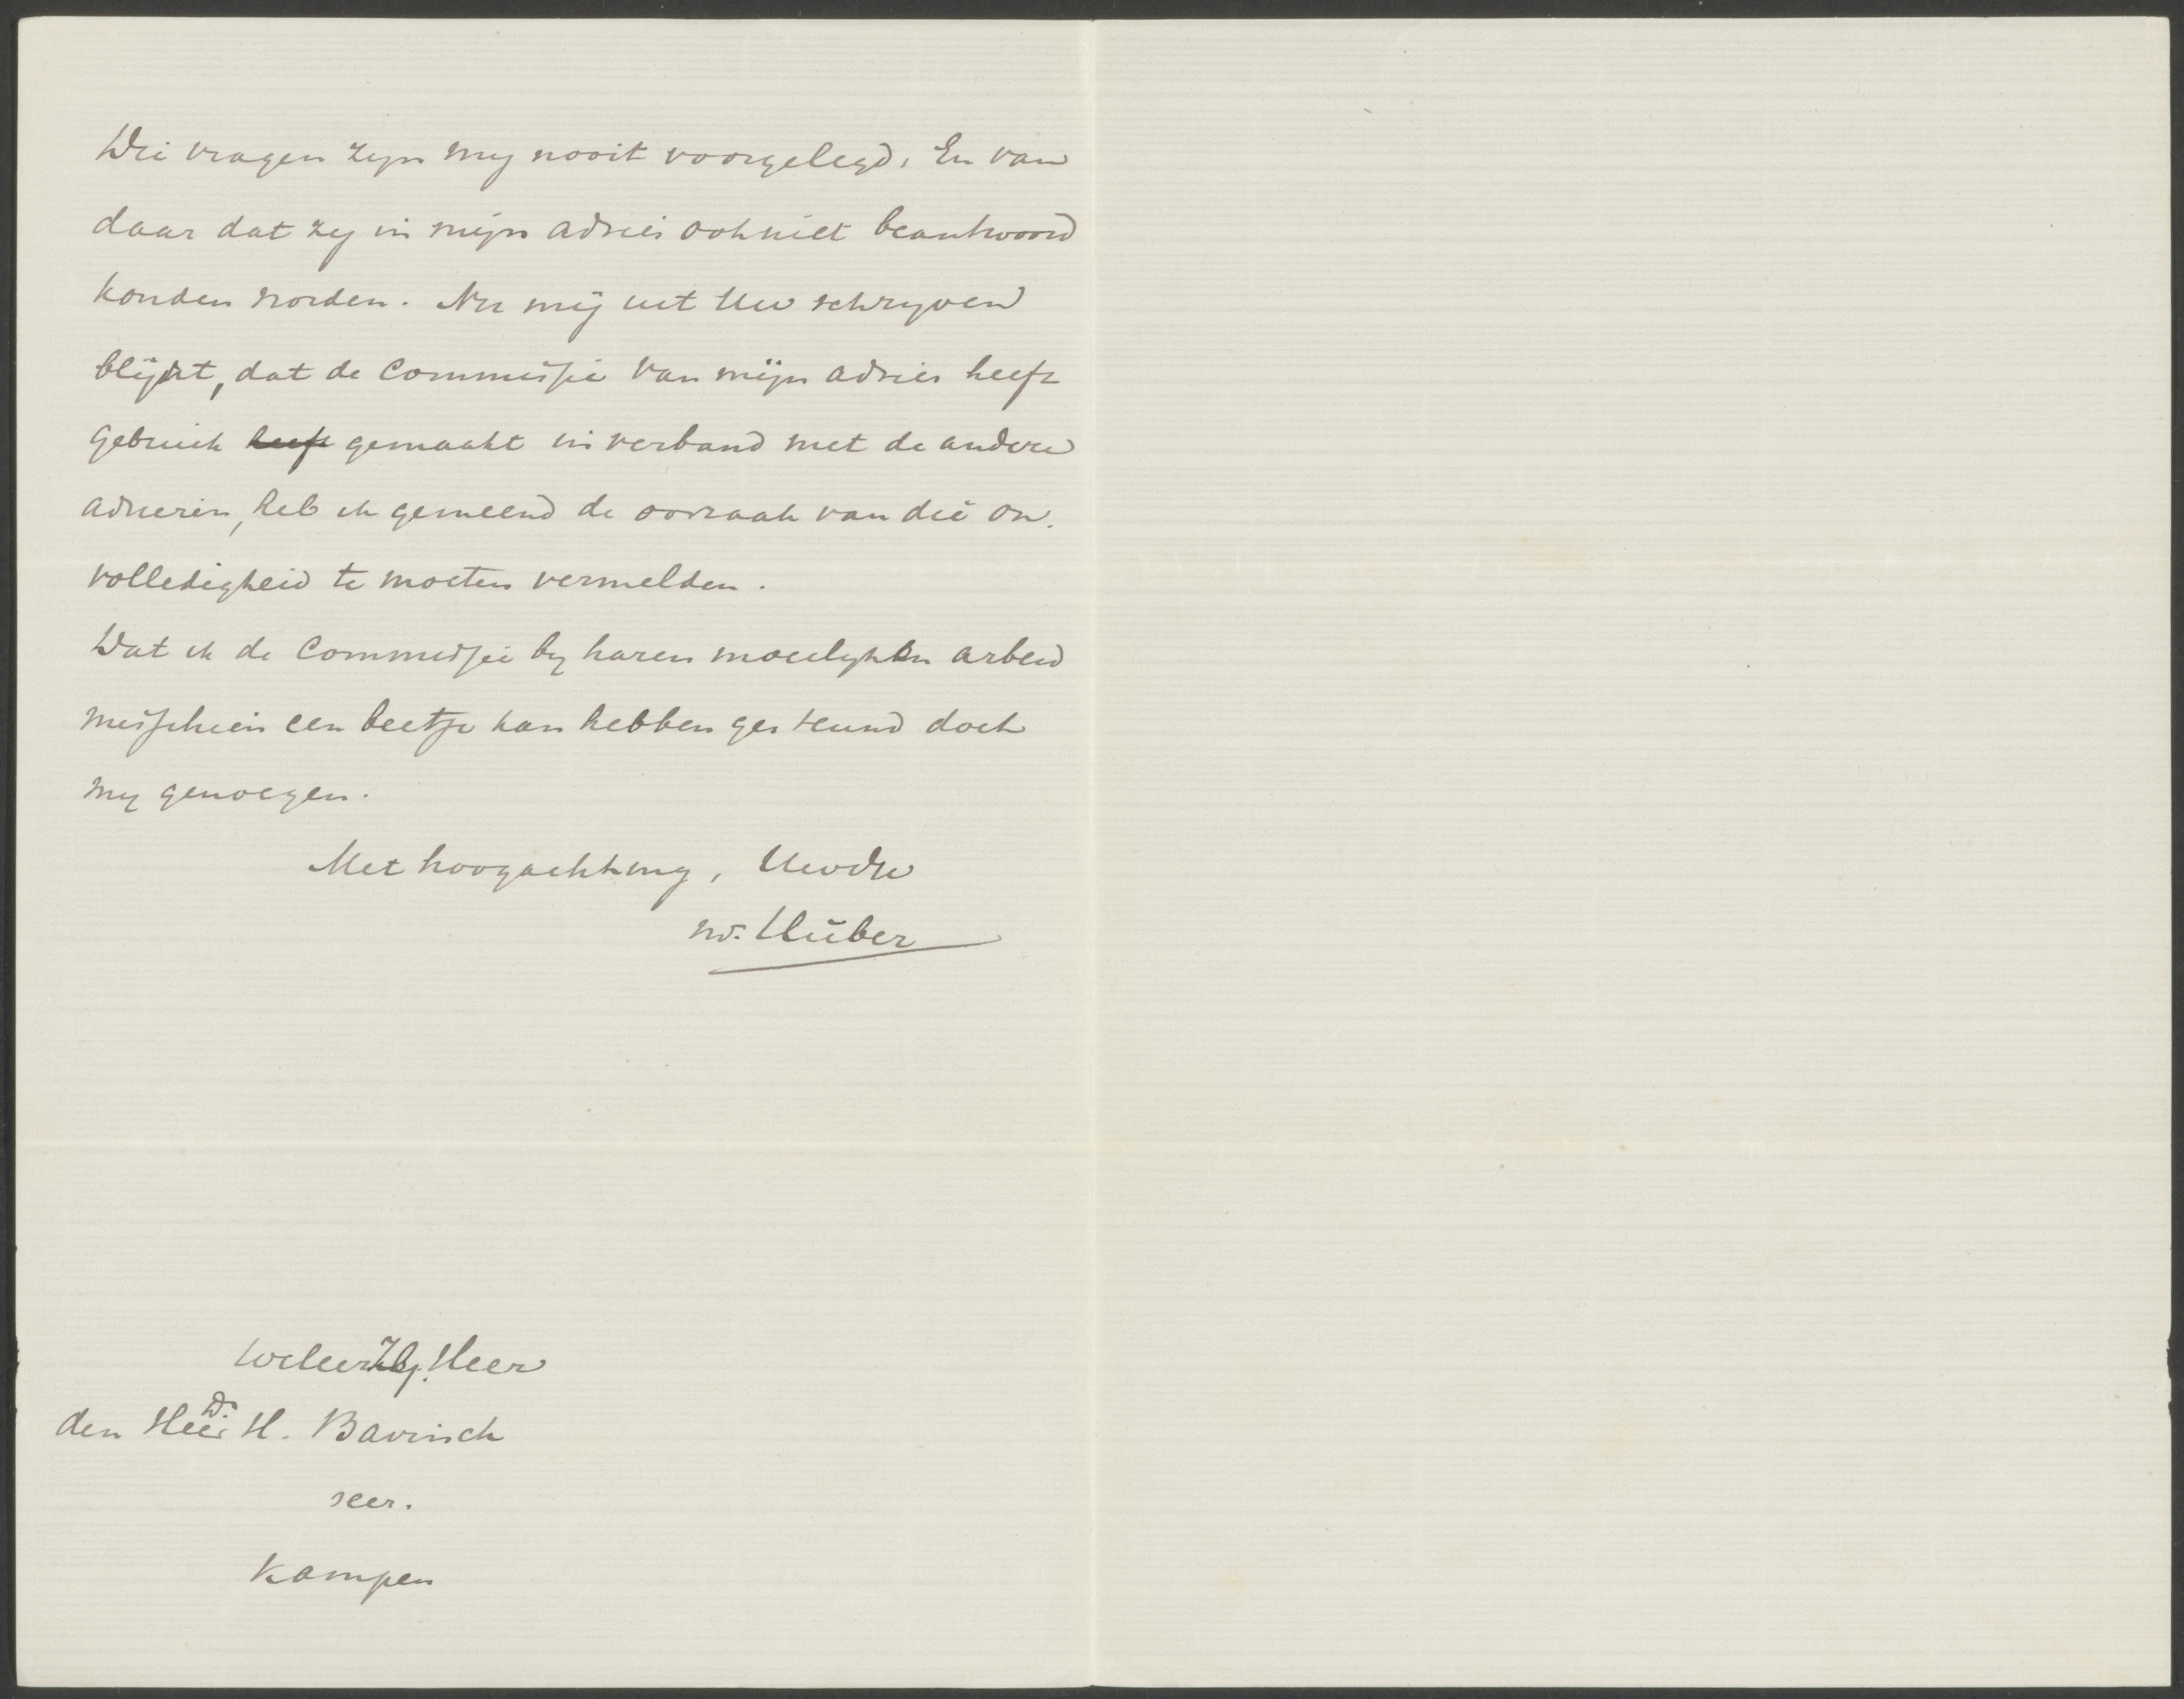 Die vragen zyn my nooit voorgelegd. En van
daar dat zy in mijn advies ook niet beantwoord
konden worden. Nu mij uit Uw schryven
blijkt, dat de Commissie van mijn advies heeft
gebruik heeft gemaakt in verband met de andere
adviezen, heb ik gemeend de oorzaak van die on-
volledigheid te moeten vermelden.
Dat ik de Commissie by haren moeilyken arbeid
misschien een beetje kan hebben gesteund doet
my genoegen.
Met hoogachting, Uwdw
W. Hüber
WeleerZG. Heer
den Heer Dr H. Bavinck
seer.
Kampen